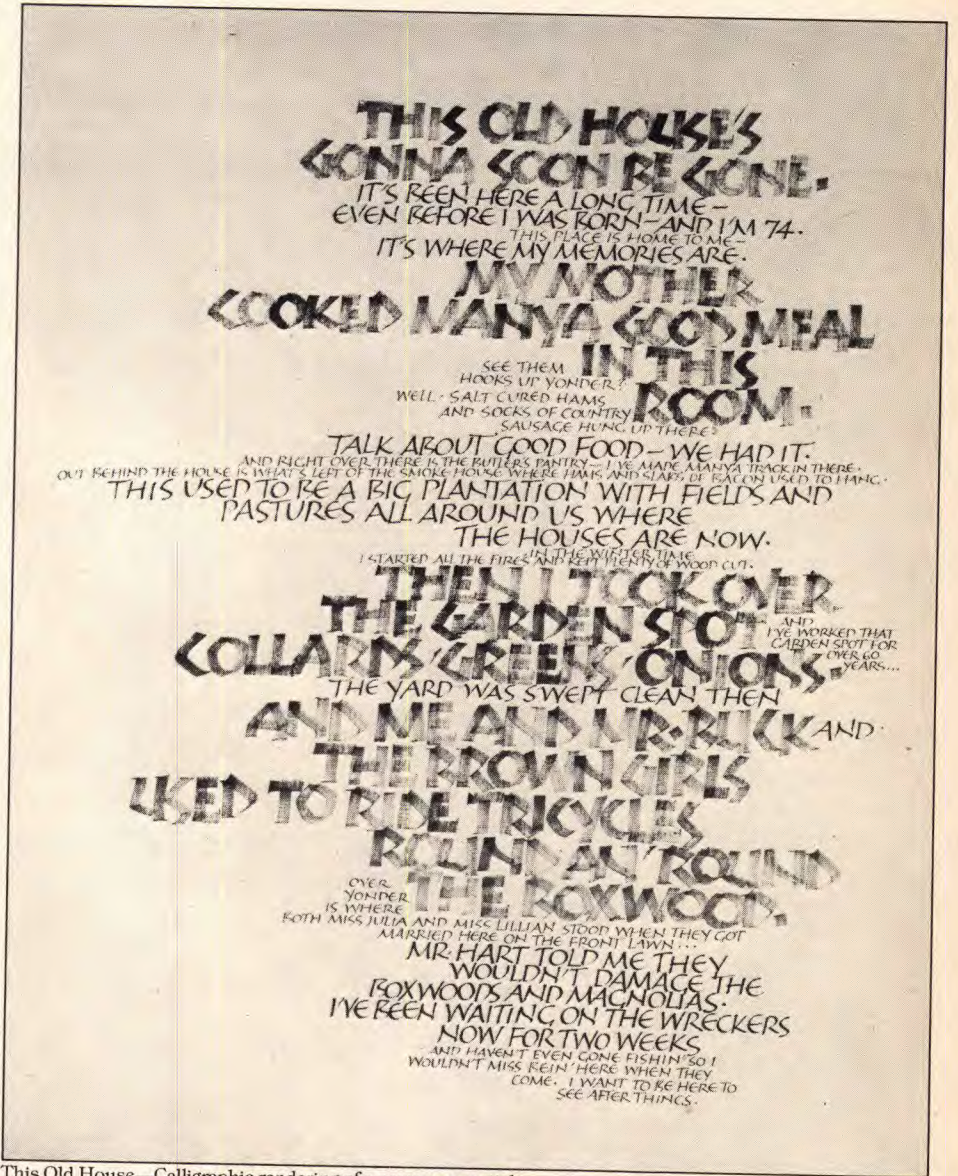 THIS OLD HOUSE'S
GONNA SOON BE GONE.
IT'S BEEN HERE A LONG TIME –
EVEN BEFORE I WAS BORN – AND I'M 74.
THIS PLACE IS HOME TO ME –
IT'S WHERE MY MEMORIES ARE.
MY MOTHER
COOKED MANYA GOOD MEAL
IN THIS
ROOM.
SEE THEM
HOOKS UP YONDER?
WELL · SALT CURED HAMS
AND SOCKS OF COUNTRY
SAUSAGE HUNG UP THERE.
TALK ABOUT GOOD FOOD – WE HAD IT.
AND RIGHT OVER THERE IS THE BUTLERS PANTRY – I'VE MADE MANYA TRACK IN THERE.
OUT BEHIND THE HOUSE IS WHAT'S LEFT OF THE SMOKE HOUSE WHERE HAMS AND SLABS OF BACON USED TO HANG.
THIS USED TO BE A BIG PLANTATION WITH FIELDS AND
PASTURES ALL AROUND US WHERE
THE HOUSES ARE NOW.
IN THE WINTER TIME
I STARTED ALL THE FIRES AND KEPT PLENTY OF WOOD CUT.
THEN I TOOK OVER
THE GARDEN SPOT
AND
I'VE WORKED THAT
GARDEN SPOT FOR
OVER 60
YEARS...
COLLARDS' GREENS' ONIONS.
THE YARD WAS SWEPT CLEAN THEN
AND ME AND MR. BUCK AND
THE BROWN GIRLS
USED TO RIDE TRICYCLES
ROUND AN' ROUND
THE BOXWOOD.
OVER
YONDER
IS WHERE
BOTH MISS JULIA AND MISS LILLIAN STOOD WHEN THEY GOT
MARRIED HERE ON THE FRONT LAWN...
MR. HART TOLD ME THEY
WOULDN'T DAMAGE THE
BOXWOODS AND MAGNOLIAS.
I'VE BEEN WAITING ON THE WRECKERS
NOW FOR TWO WEEKS
AND HAVEN'T EVEN GONE FISHIN' SO I
WOULDN'T MISS BEIN' HERE WHEN THEY
COME. I WANT TO BE HERE TO
SEE AFTER THINGS.
This Old House – Calligraphic rendering